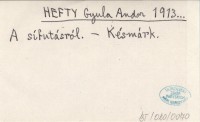 HEFTY Gyula Andor 1913...
A sífutásról. – Késmárk.